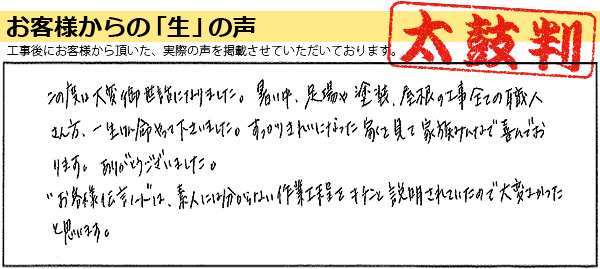 お客様からの「生」の声
太鼓判
工事後にお客様から頂いた、実際の声を掲載させていただいております。
この度は大変御世話になりました。暑い中、足場や塗装、屋根の工事全ての職人
さん方、一生懸命やって下さいました。すっかりきれいになった家を見て家族みんなで喜んでお
ります。ありがとうございました。
"お客様伝言ボードは、素人には分からない作業工程をキチンと説明されていたので大変よかった
と思います。